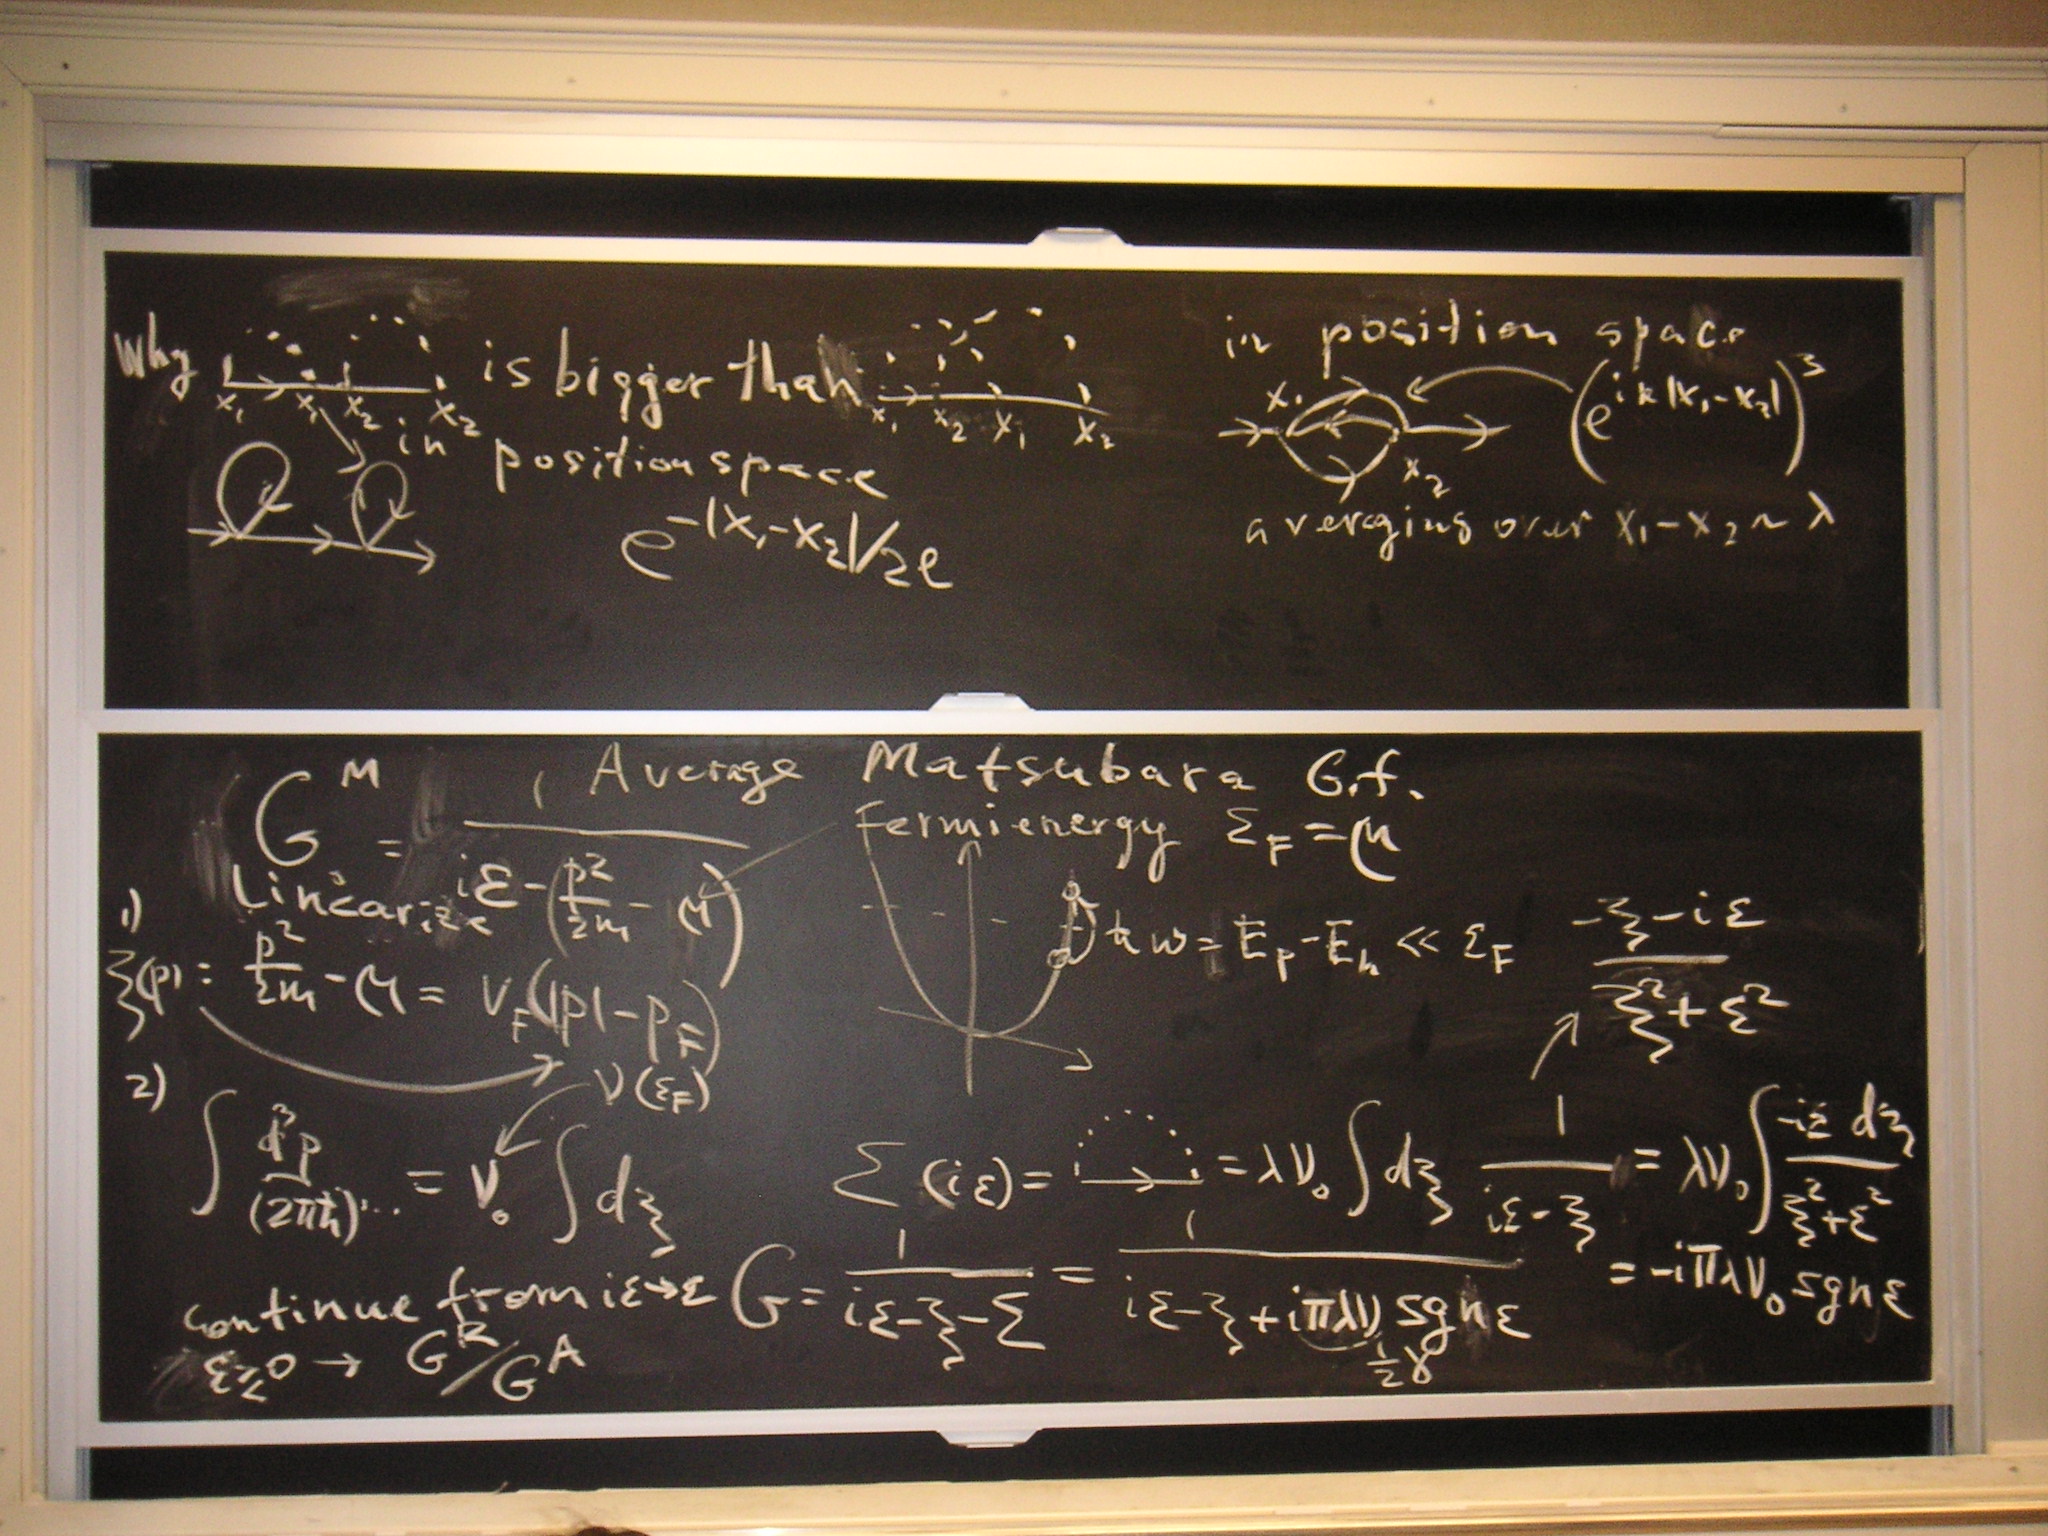 Why x₁ x₁ x₂ x₂ is bigger than x₁ x₂ x₁ x₂
in position space
e^{-|x₁-x₂|/2ℓ}
in position space
x₁ x₂ (e^{ik|x₁-x₂|})³
averaging over x₁-x₂ ~ λ
Average Matsubara G.f.
G^M = 1/(iε - (p²/2m - μ))
Fermi energy ε_F = μ
1) Linearize
ξ(p) = p²/2m - μ = v_F(|p| - p_F)
ħω = E_p - E_h ≪ ε_F
(-ξ - iε)/(ξ² + ε²)
2) ν(ε_F)
∫ d³p/(2πħ)³... = ν₀ ∫dξ
Σ(iε) = = λν₀ ∫dξ 1/(iε - ξ) = λν₀ ∫ -iε dξ/(ξ² + ε²)
= -iπλν₀ sgn ε
continue from iε→ε
ε≷0 → G^R/G^A
G = 1/(iε - ξ - Σ) = 1/(iε - ξ + iπλν sgn ε)
½γ